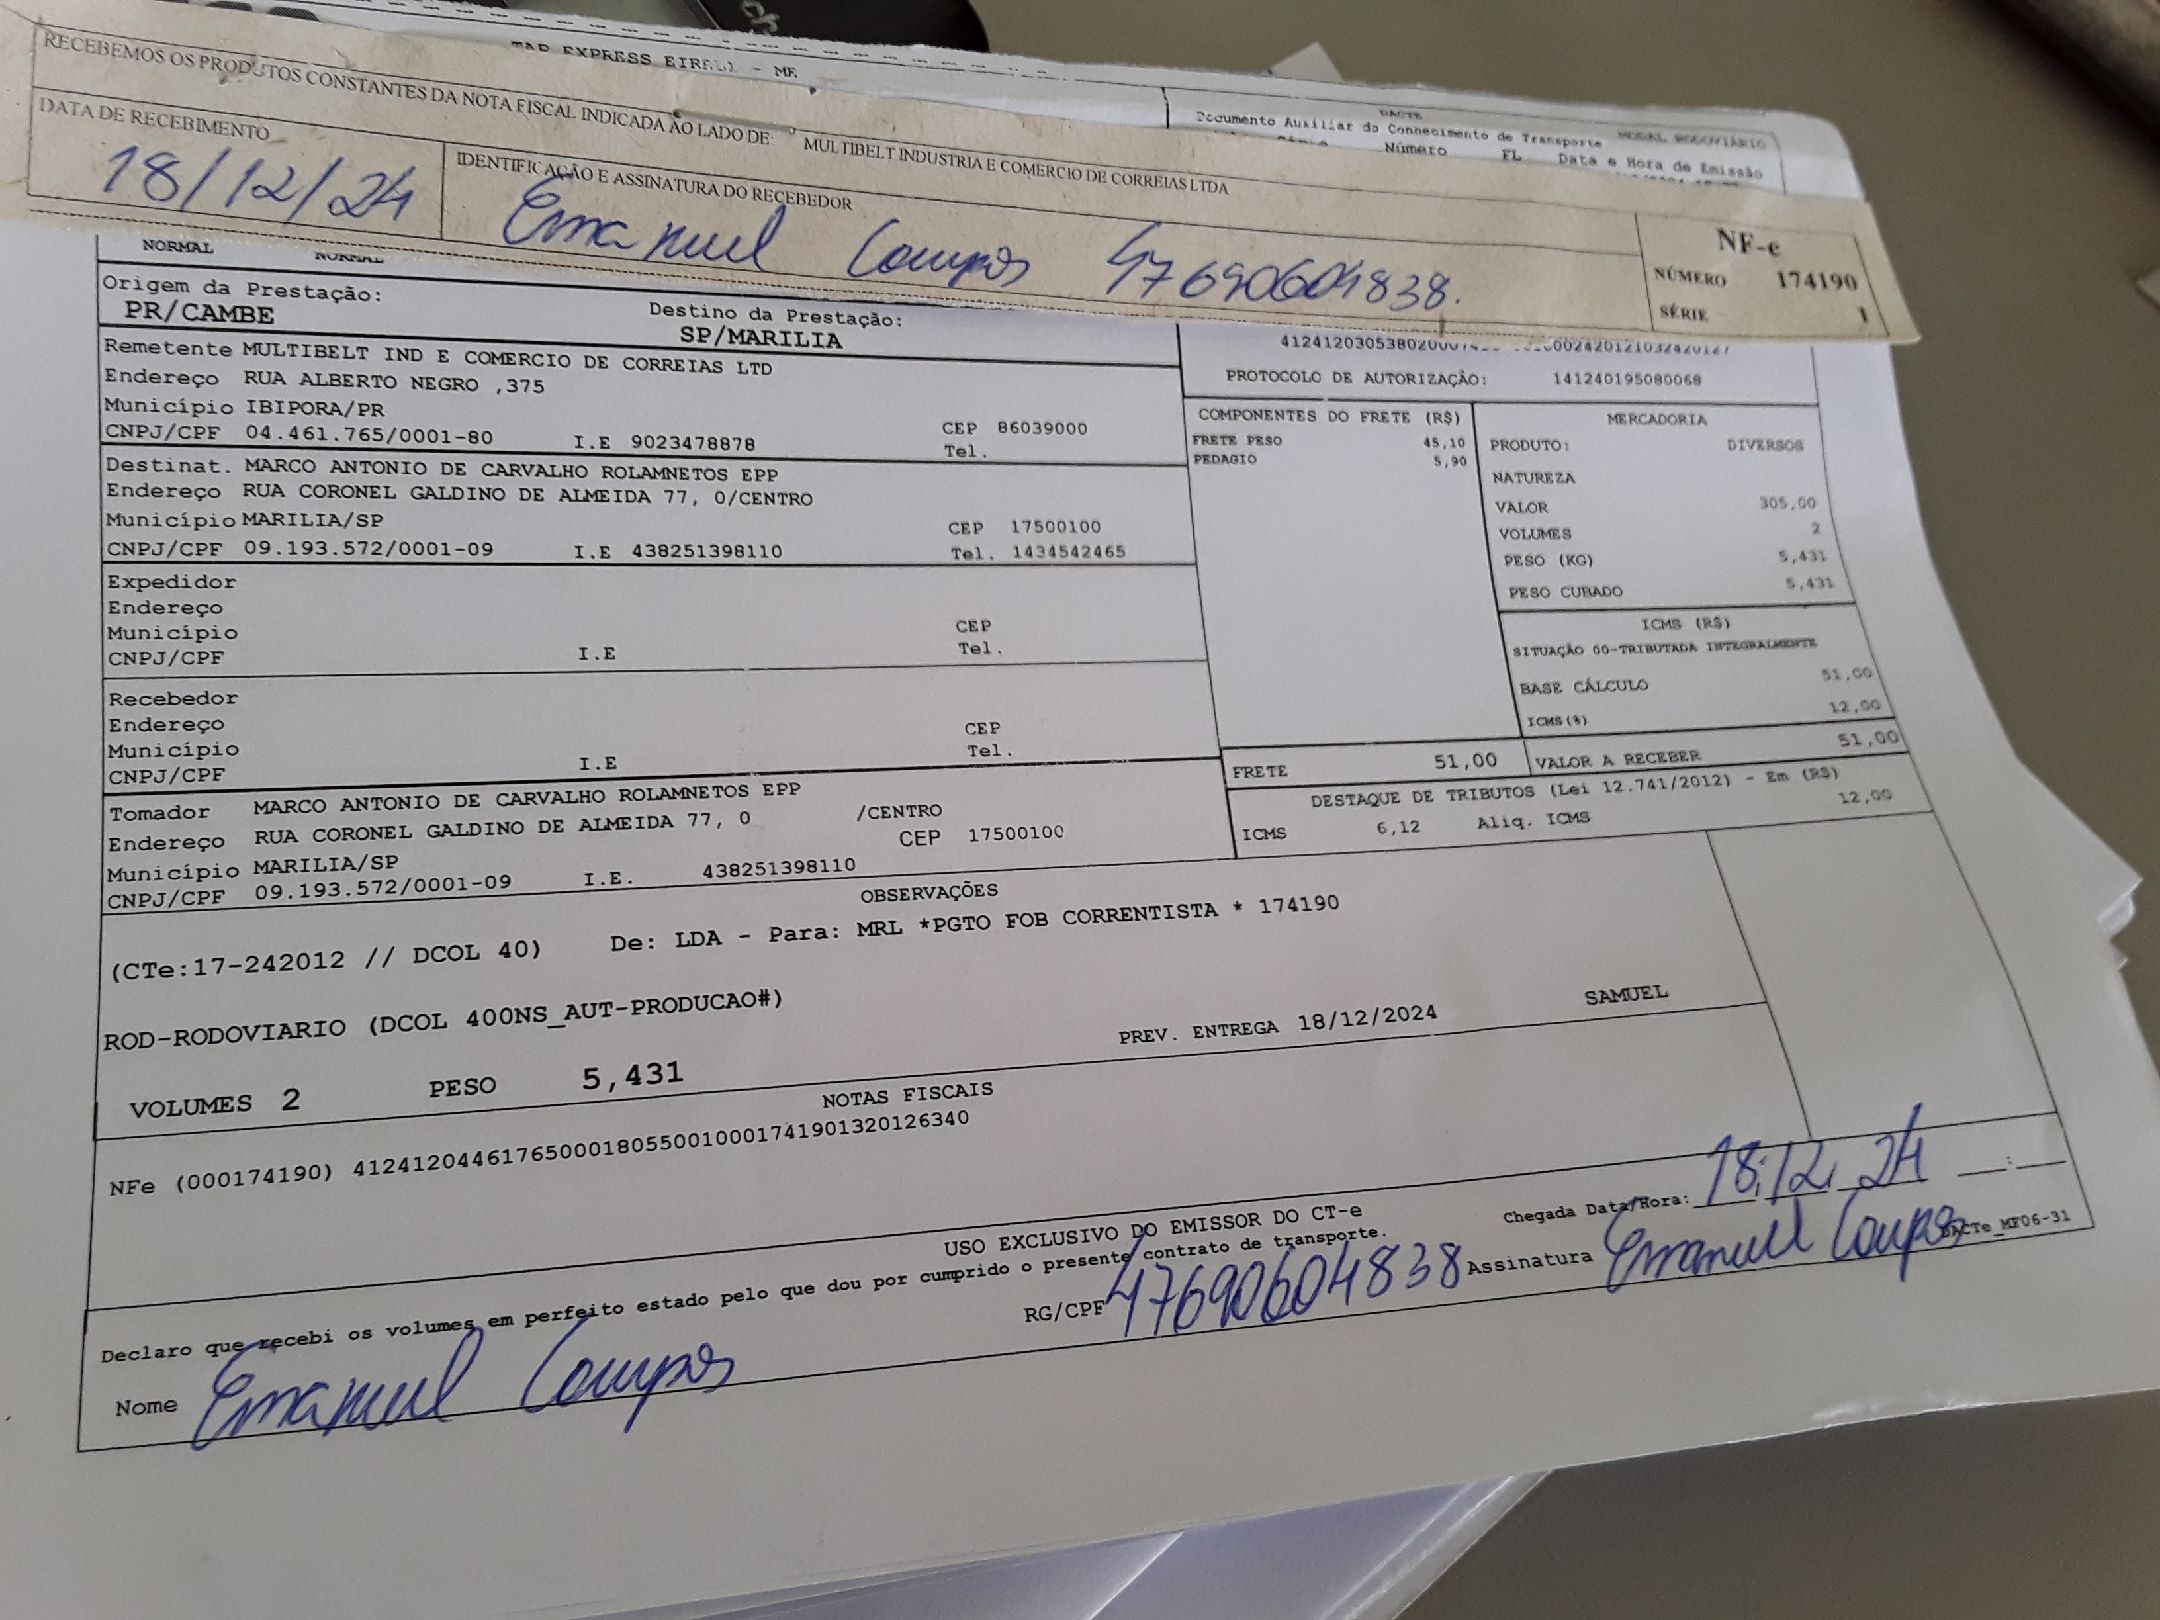 EXPRESS EIRELI - ME
RECEBEMOS OS PRODUTOS CONSTANTES DA NOTA FISCAL INDICADA AO LADO DE: MULTIBELT INDUSTRIA E COMERCIO DE CORREIAS LTDA
DATA DE RECEBIMENTO
18/12/24
IDENTIFICAÇÃO E ASSINATURA DO RECEBEDOR
Emanuel Campos 47690604838.
NF-e
NÚMERO 174190
SÉRIE 1
DACTE
Documento Auxiliar do Conhecimento de Transporte
MODAL RODOVIÁRIO
Número FL Data e Hora de Emissão
NORMAL NORMAL
Origem da Prestação:
PR/CAMBE
Destino da Prestação:
SP/MARILIA
PROTOCOLO DE AUTORIZAÇÃO: 141240195080068
Remetente MULTIBELT IND E COMERCIO DE CORREIAS LTD
Endereço RUA ALBERTO NEGRO ,375
Município IBIPORA/PR CEP 86039000
CNPJ/CPF 04.461.765/0001-80 I.E 9023478878 Tel.
Destinat. MARCO ANTONIO DE CARVALHO ROLAMNETOS EPP
Endereço RUA CORONEL GALDINO DE ALMEIDA 77, 0/CENTRO
Município MARILIA/SP CEP 17500100
CNPJ/CPF 09.193.572/0001-09 I.E 438251398110 Tel. 1434542465
Expedidor
Endereço
Município CEP
CNPJ/CPF I.E Tel.
Recebedor
Endereço
Município CEP
CNPJ/CPF I.E Tel.
Tomador MARCO ANTONIO DE CARVALHO ROLAMNETOS EPP
Endereço RUA CORONEL GALDINO DE ALMEIDA 77, 0 /CENTRO
Município MARILIA/SP CEP 17500100
CNPJ/CPF 09.193.572/0001-09 I.E. 438251398110
COMPONENTES DO FRETE (R$)
FRETE PESO 45,10
PEDAGIO 5,90
MERCADORIA
PRODUTO: DIVERSOS
NATUREZA
VALOR 305,00
VOLUMES 2
PESO (KG) 5,431
PESO CUBADO 5,431
ICMS (R$)
SITUAÇÃO 00-TRIBUTADA INTEGRALMENTE
BASE CÁLCULO 51,00
ICMS(%) 12,00
FRETE 51,00
VALOR A RECEBER 51,00
DESTAQUE DE TRIBUTOS (Lei 12.741/2012) - Em (R$)
ICMS 6,12 Aliq. ICMS 12,00
OBSERVAÇÕES
(CTe:17-242012 // DCOL 40) De: LDA - Para: MRL *PGTO FOB CORRENTISTA * 174190
ROD-RODOVIARIO (DCOL 400NS_AUT-PRODUCAO#)
PREV. ENTREGA 18/12/2024 SAMUEL
VOLUMES 2 PESO 5,431
NOTAS FISCAIS
NFe (000174190) 41241204461765000180550010001741901320126340
USO EXCLUSIVO DO EMISSOR DO CT-e
Declaro que recebi os volumes em perfeito estado pelo que dou por cumprido o presente contrato de transporte.
Chegada Data/Hora: 18/12/24 __:__
Nome Emanuel Campos
RG/CPF 47690604838
Assinatura Emanuel Campos
DACTe_MF06-31